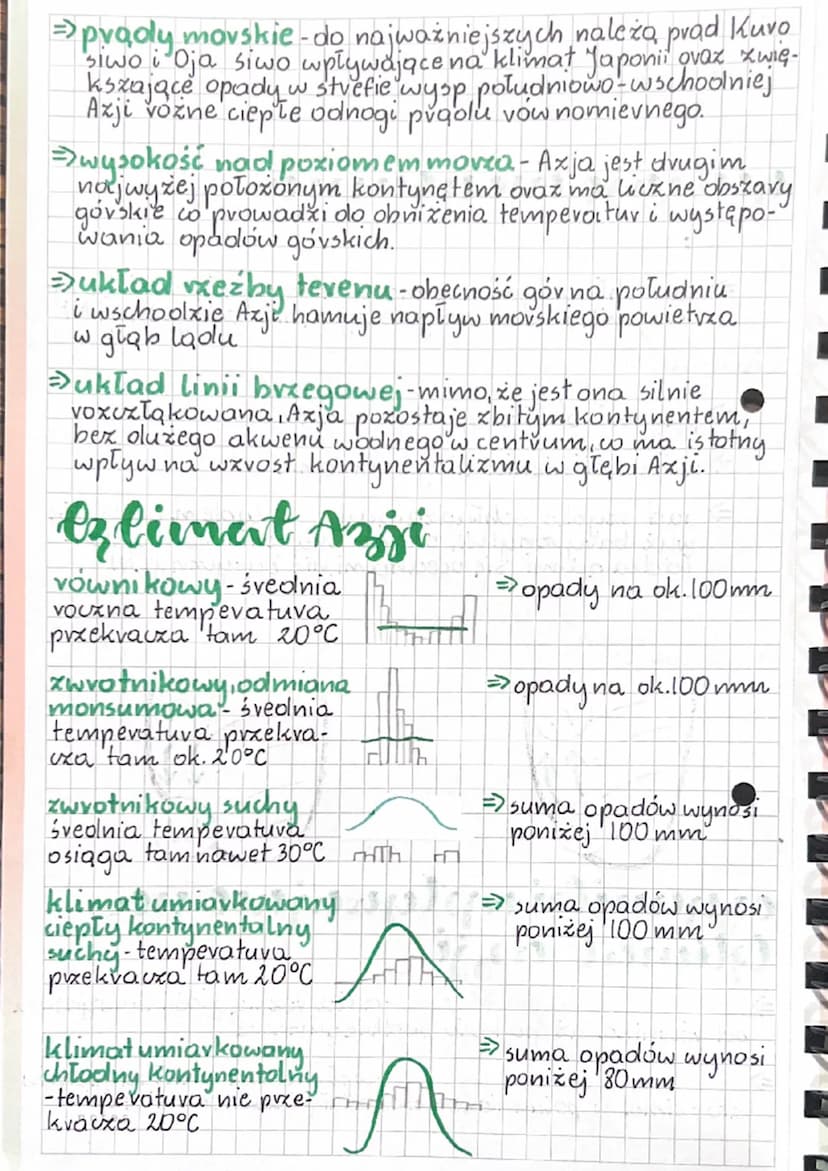 ⇒ prądy morskie - do najważniejszych należą prąd Kuro
siwo i Oja siwo wpływające na klimat Japonii oraz zwię-
kszające opady w strefie wysp południowo-wschodniej
Azji różne ciepłe odnogi prądu równomiernego.
⇒ wysokość nad poziomem morza - Azja jest drugim
najwyżej położonym kontynętem oraz ma liczne obszary
górskie co prowadzi do obniżenia temperatur i występo-
wania opadów górskich.
⇒ układ rzeźby terenu - obecność gór na południu
i wschodzie Azji hamuje napływ morskiego powietrza
w głąb lądu
⇒ układ linii brzegowej - mimo, że jest ona silnie
rozcztąkowana, Azja pozostaje zbitym kontynentem,
bez dużego akwenu wodnego w centrum, co ma istotny
wpływ na wzrost kontynentalizmu w głębi Azji.
Czlimat Azji
równikowy - średnia
roczna temperatura
przekracza tam 20°C
⇒ opady na ok. 100 mm
zwrotnikowy, odmiana
monsumowa - średnia
temperatura przekra-
cza tam ok. 20°C
⇒ opady na ok. 100 mm
zwrotnikowy suchy
średnia temperatura
osiąga tam nawet 30°C
⇒ suma opadów wynosi
poniżej 100 mm
klimat umiarkowany
ciepły kontynentalny
suchy - temperatura
przekracza tam 20°C
⇒ suma opadów wynosi
poniżej 100 mm
klimat umiarkowany
chłodny kontyntentalny
- temperatura nie prze-
kracza 20°C
⇒ suma opadów wynosi
poniżej 80 mm